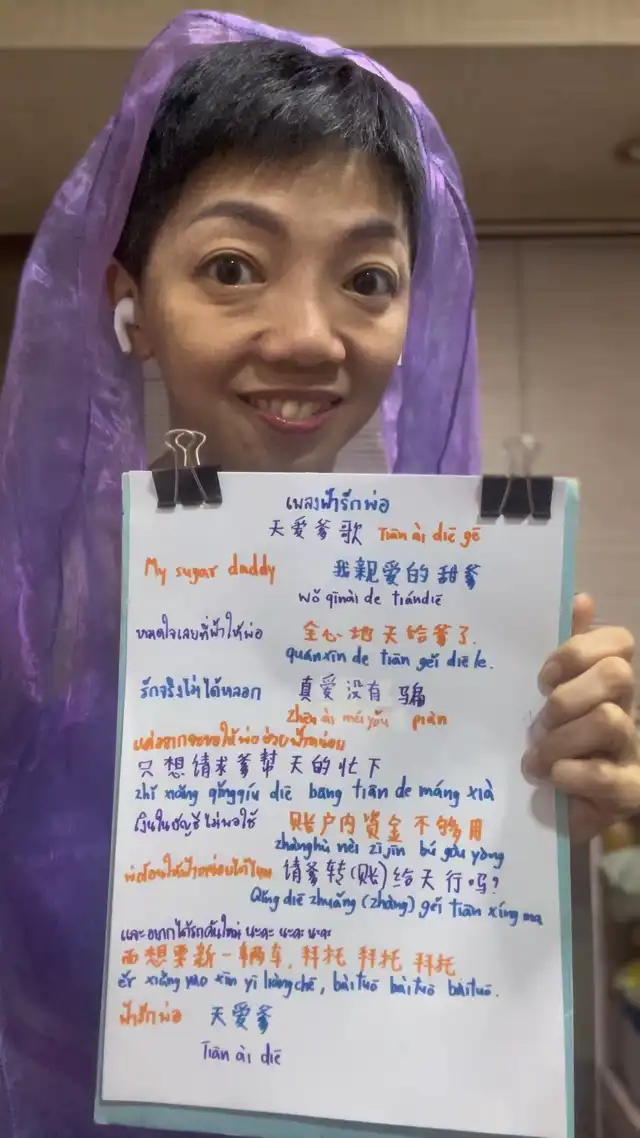 เพลงฟ้ารักพ่อ
天爱爹歌 Tiān ài diē gē
My sugar daddy 我親爱的甜爹
wǒ qīnài de tiándiē
หมดใจเลยที่ฟ้าให้พ่อ 全心地天给爹了.
quánxīn de tiān gěi diē le.
รักจริงไม่ได้หลอก 真爱没有骗
zhēn ài méi yǒu piàn
แค่อยากจะขอให้พ่อช่วยฟ้าหน่อย
只想请求爹幫天的忙下
zhǐ xiǎng qǐngqíu diē bang tiān de máng xià
เงินในบัญชีไม่พอใช้ 账户内资金不够用
zhànghù nèi zījīn bú gòu yòng
พ่อโอนให้ฟ้าหน่อยได้ไหม 请爹转(账)给天行吗?
Qǐng diē zhuǎng (zhàng) gěi tiān xíng ma
และอยากได้รถคันใหม่ นะคะ นะคะ นะคะ
而想要新一辆车, 拜托 拜托 拜托
ěr xiǎng yào xīn yī liàng chē, bàituō bàituō bàituō.
ฟ้ารักพ่อ 天爱爹
Tiān ài diē